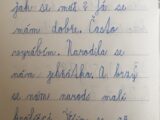 jak se mát? Já se
mám dobře. Často
vyrábím. Narodila se
nám
A brzy
se nám narodí malí